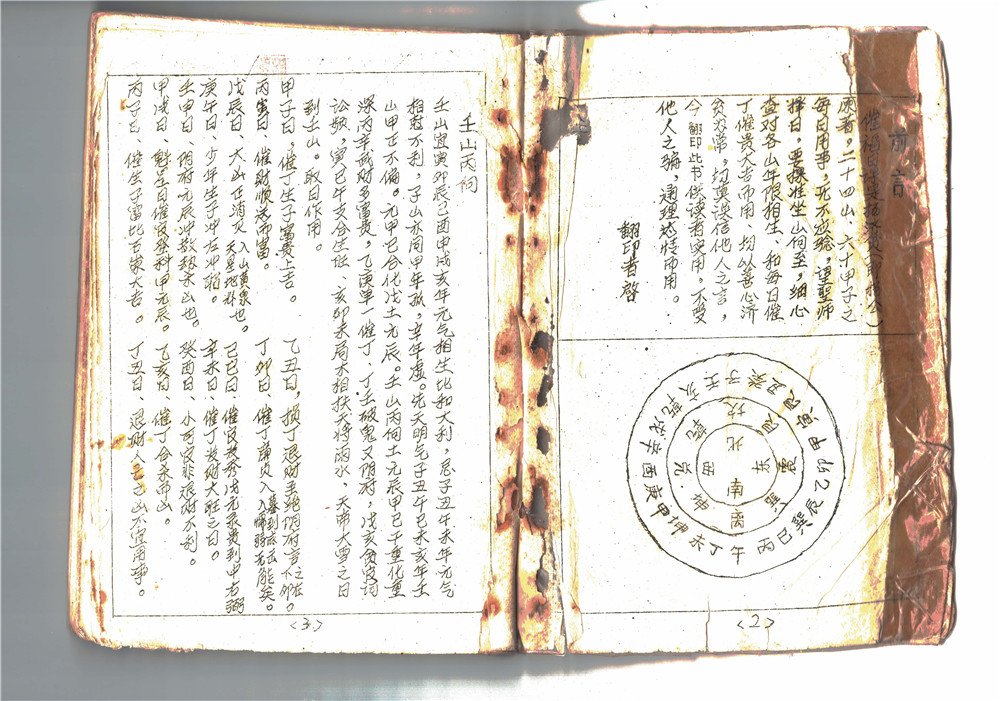 前言
原著，二十四山、六十甲子之
每日用事，无不应验，望堅师
择日，要採准坐山向至，细心
查对各山年限相生、和每日催
丁催贵大吉而用、均以善心济
贫为常，切莫误信他人之言，
今翻印此书供读者实用，不受
他人之骗，通理达情而用。
翻印者啓
北
东
南
西
坎
艮
震
巽
离
坤
兑
乾
壬子癸丑艮寅甲卯乙辰巽巳丙午丁未坤申庚酉辛戌乾亥
<2>
壬山丙向
壬山宜寅卯辰巳酉申戌亥年元气相生比和大利，忌子丑午未年元气
相尅不利，子山亦同甲年孤，辛年虚。先天明气子丑午巳未亥年壬
山甲正不偏。元甲己合化戊土元辰。壬山丙向土元辰甲己干重化重
深丙辛武财多富贵，乙庚单一催丁，丁壬破鬼又阴府，戊亥贫皮词
讼败，寅巳午支合生旺、亥卯未局木相扶大将雨水，天帝大雪之日
到壬山。取日作用。
甲子日，催丁生子富贵上吉。
乙丑日，损丁退财至绝阴府言之在不卯。
丙寅日、催财顺送而富。
丁卯日、催丁庙贞入
戊辰日、大山正消灭入山黄泉也。天星地补
己巳日
庚午日、少年生子冲左冲右。
辛未日、催丁发财大旺之日。
壬申日、阴府元辰冲散救未山也。
癸酉日、小可良非退财不利。
甲戌日、魁星日催良发科甲元辰。
乙亥日、催丁合杀帝山。
丙子日、催生子富比石家大吉。
丁丑日、退财人亡之山不宜用事。
<3>